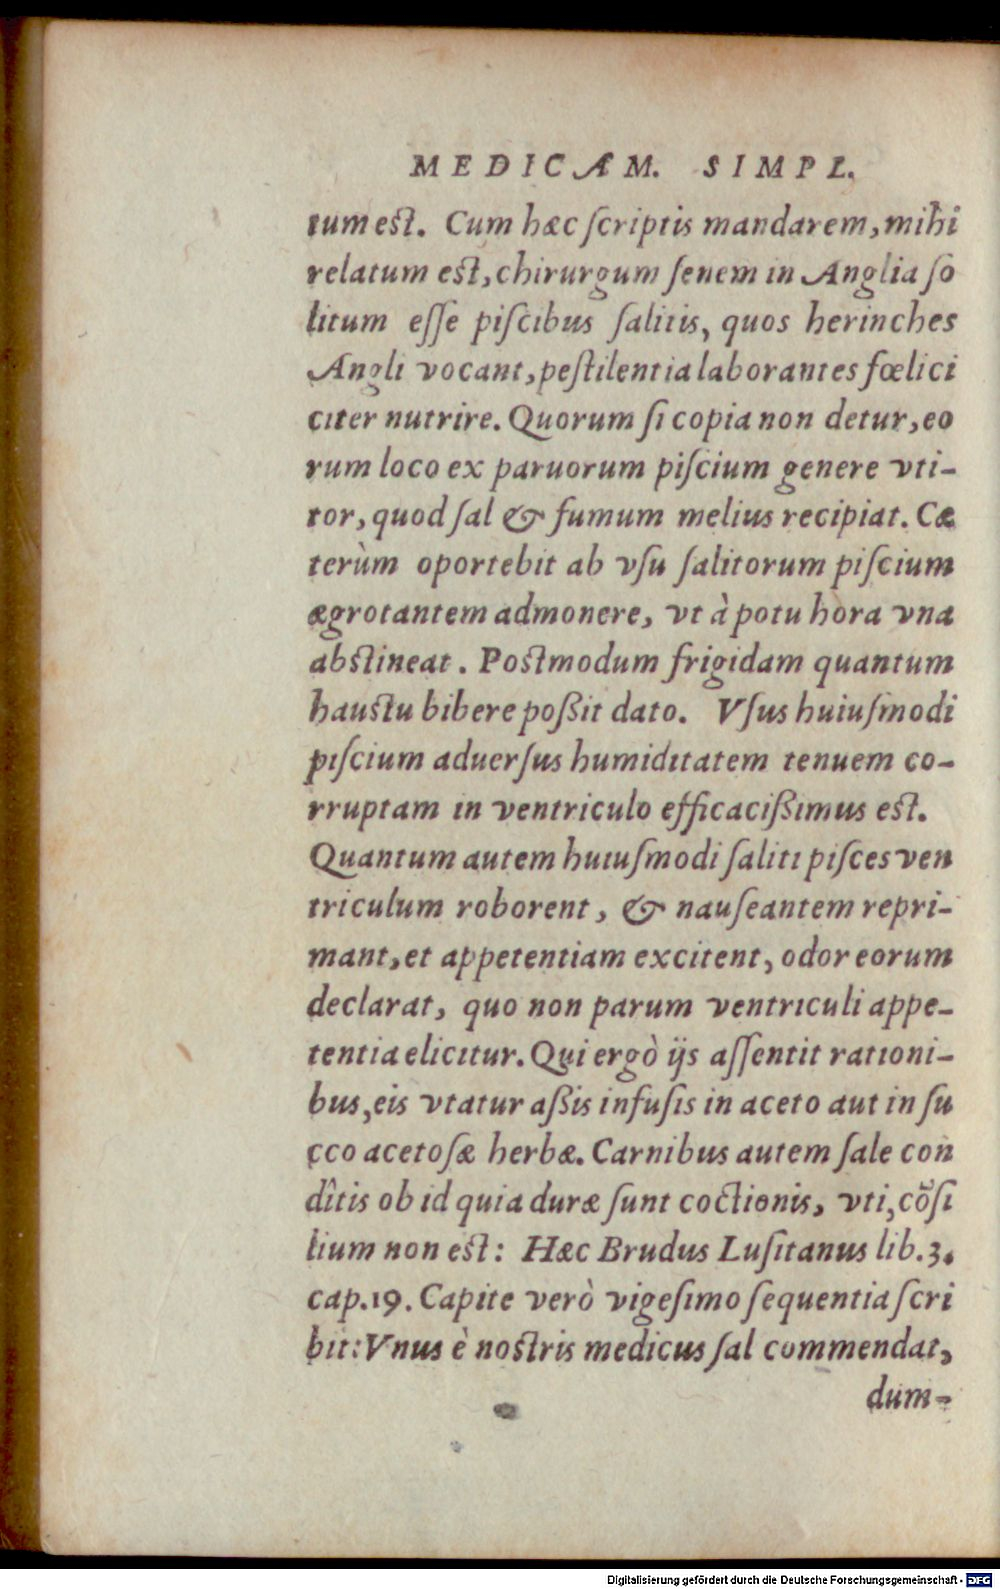 MEDICAM. SIMPL.
tum est. Cum hæc ſcriptis mandarem, mihi
relatum est, chirurgum ſenem in Anglia ſo
litum eſſe piſcibus ſalitis, quos herinches
Angli vocant, peſtilentia laborantes fœlici
citer nutrire. Quorum ſi copia non detur, eo
rum loco ex paruorum piſcium genere vti-
tor, quod ſal & fumum melius recipiat. Cæ
terùm oportebit ab vſu ſalitorum piſcium
ægrotantem admonere, vt à potu hora vna
abstineat. Postmodum frigidam quantum
haustu bibere poßit dato. Vſus huiuſmodi
piſcium aduerſus humiditatem tenuem co-
rruptam in ventriculo efficacißimus est.
Quantum autem huiuſmodi ſaliti piſces ven
triculum roborent, & nauſeantem repri-
mant, et appetentiam excitent, odor eorum
declarat, quo non parum ventriculi appe-
tentia elicitur. Qui ergò ijs aſſentit rationi-
bus, eis vtatur aßis infuſis in aceto aut in ſu
cco acetoſæ herbæ. Carnibus autem ſale con
dîtis ob id quia duræ ſunt coctionis, vti, cõſi
lium non est: Hæc Brudus Luſitanus lib. 3.
cap. 19. Capite verò vigeſimo ſequentia ſcri
bit: Vnus è nostris medicus ſal commendat,
dum-
Digitalisierung gefördert durch die Deutsche Forschungsgemeinschaft - DFG